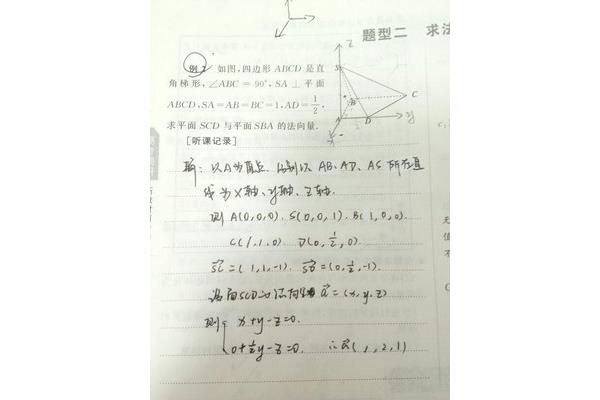 题型二 求法
例2 如图,四边形 ABCD 是直
角梯形,∠ABC = 90°,SA ⊥ 平面
ABCD,SA=AB=BC=1,AD=1/2,
求平面 SCD 与平面 SBA 的法向量.
[听课记录]
解:以A为原点,分别以 AB、AD、AS 所在直
线为x轴、y轴、z轴.
则 A(0,0,0). S(0,0,1). B(1,0,0).
C(1,1,0). D(0,1/2,0).
SC=(1,1,-1). SD=(0,1/2,-1).
设面SCD的法向量 a=(x,y,z)
则{ x+y-z=0.
0+1/2y-z=0. ∴a(1,2,1)
z
S
B
C
A
D
y
x